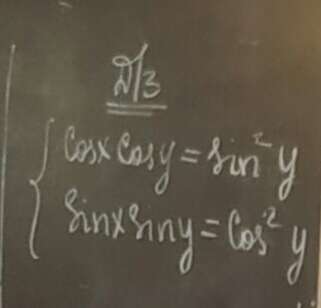 Д/з
cosx cosy = sin² y
sinx siny = cos² y